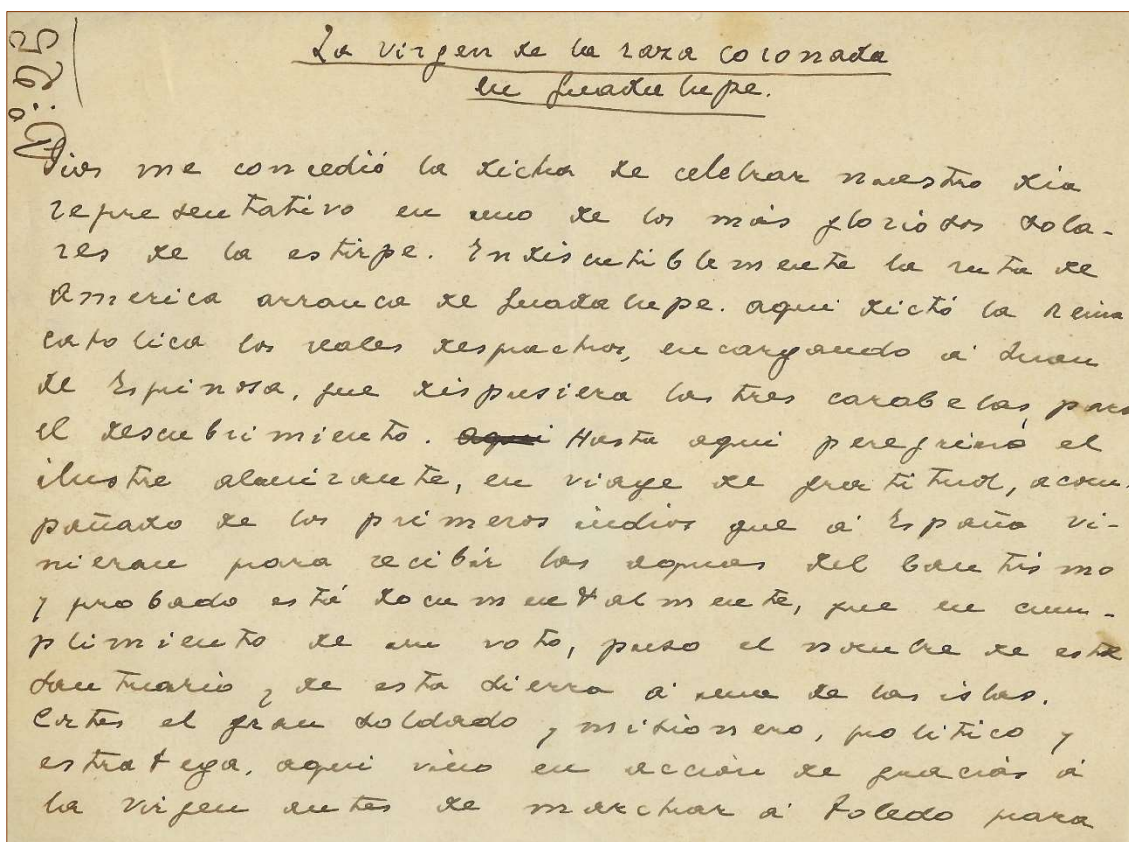 La virgen de la raza coronada
en Guadalupe.
Dios me concedió la dicha de celebrar nuestro dia
representativo en uno de los más gloriosos sola-
res de la estirpe. Indiscutiblemente la ruta de
America arranca de Guadalupe. aqui dictó la Reina
catolica los reales despachos, encargando á Juan
de Espinosa, que dispusiera las tres carabelas, para
el descubrimiento. Aqui Hasta aqui peregrinó el
ilustre almirante, en viaje de gratitud, acom-
pañado de los primeros indios que á España vi-
nieran para recibir las aguas del bautismo
y probado está documentalmente, que en cum-
plimiento de un voto, puso el nombre de este
santuario y de esta sierra á una de las islas.
Cortes el gran soldado y misionero, politico y
estratega, aqui vino en acción de gracias á
la virgen antes de marchar á Toledo para